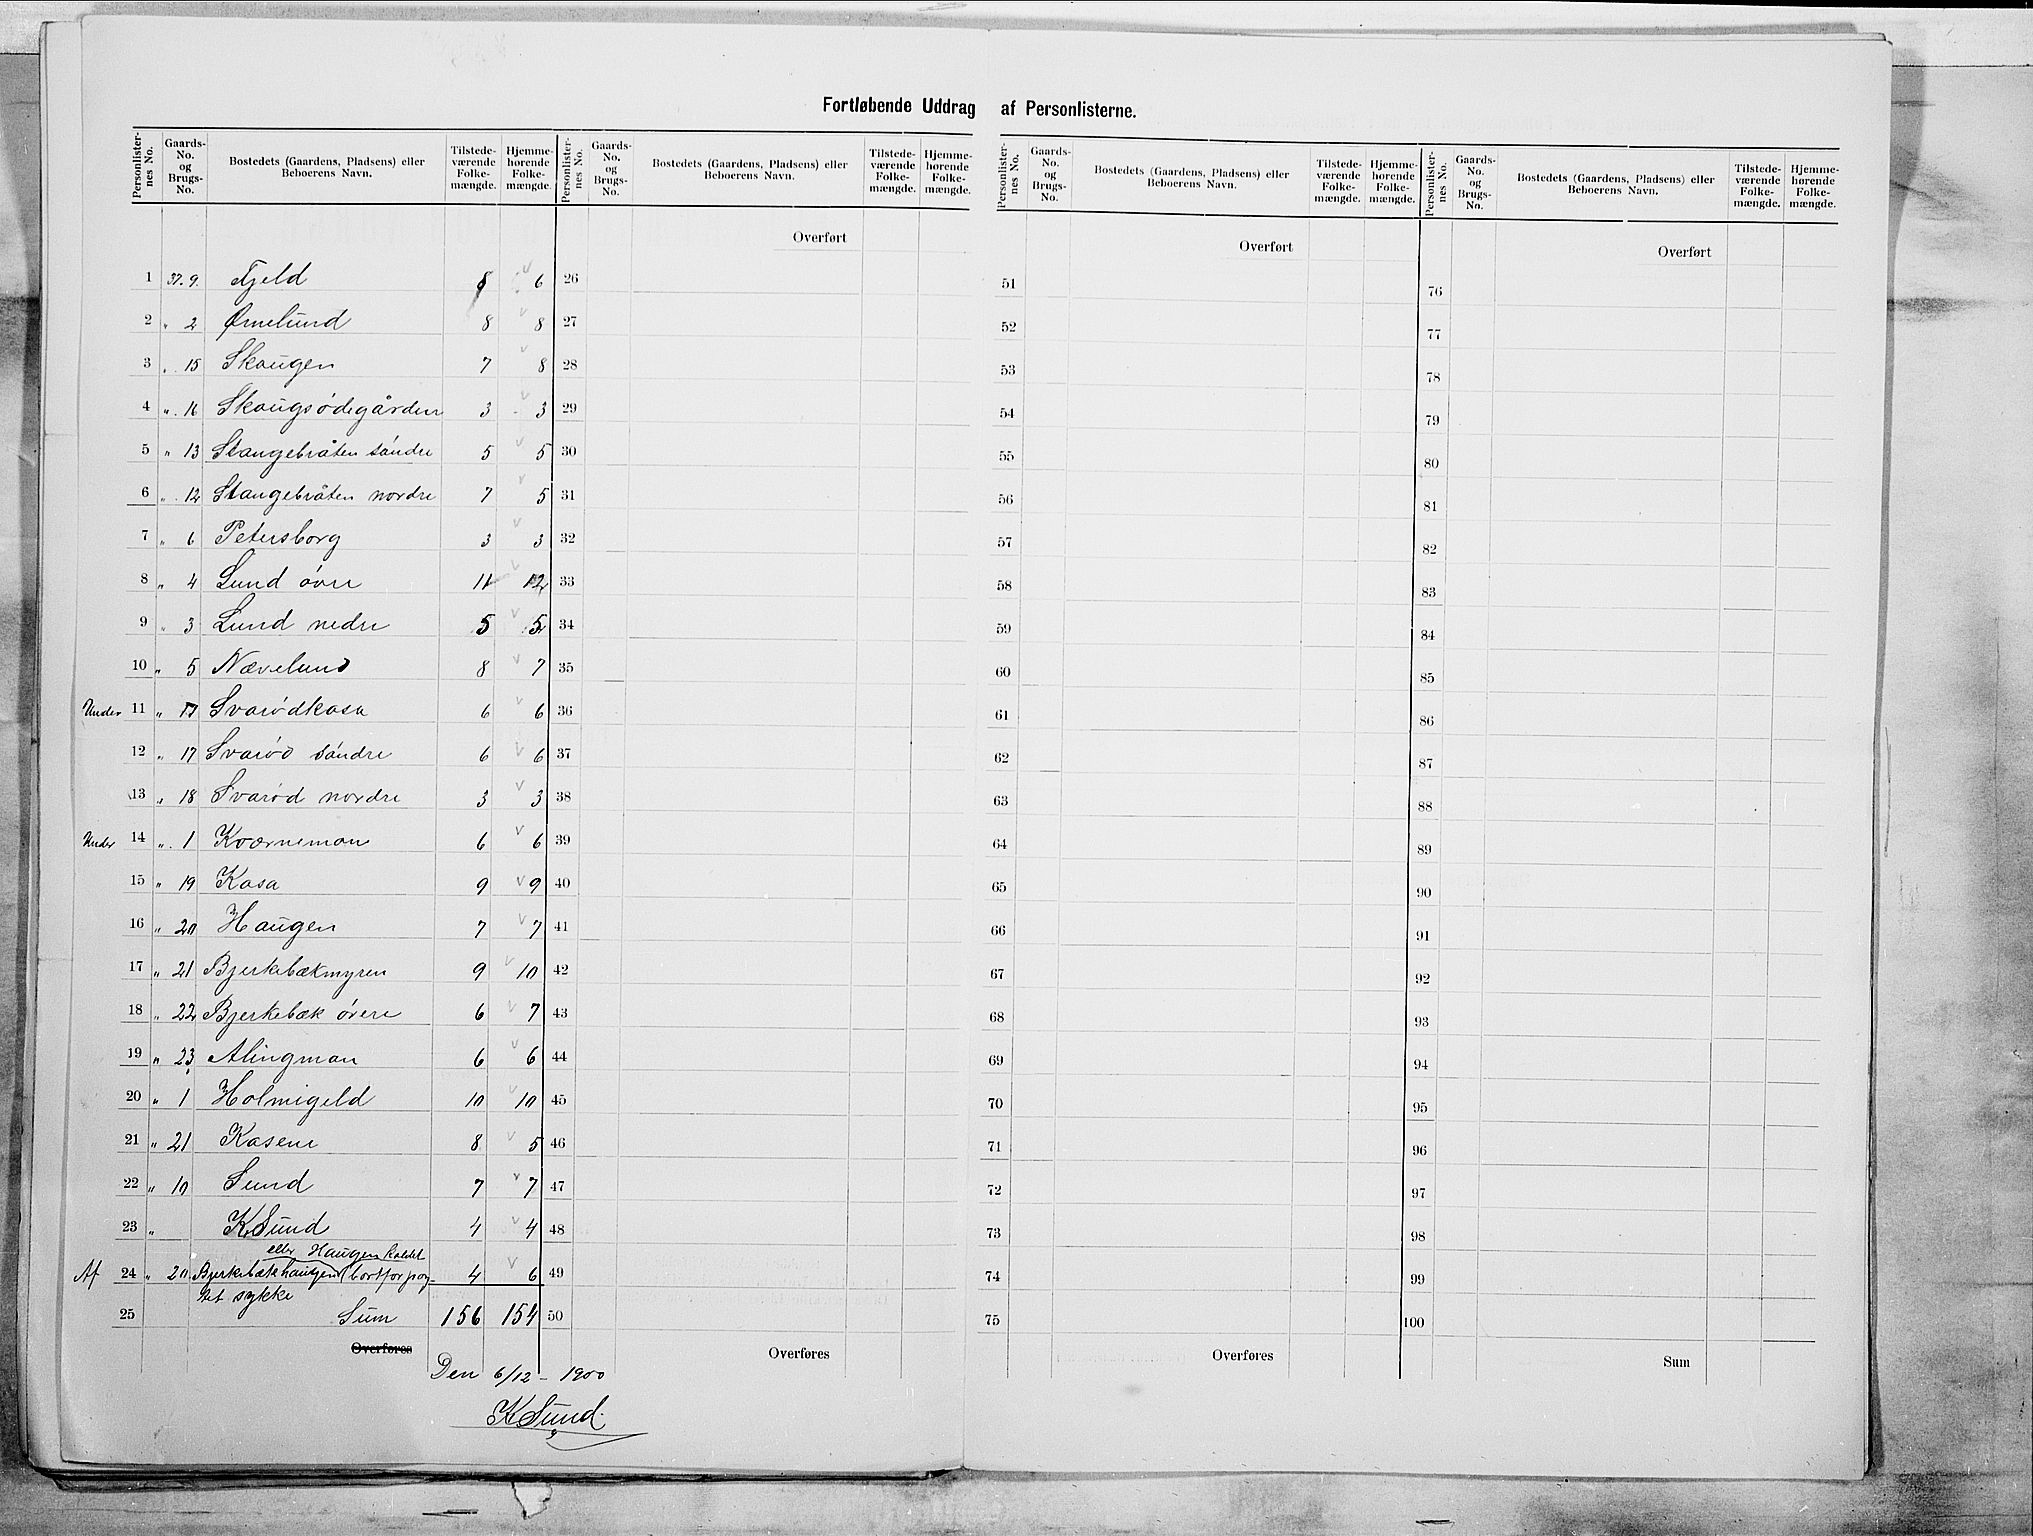 Fortløbende Uddrag af Personlisterne.
Personlister-nes No. Gaards-No. og Brugs-No. Bostedets (Gaardens, Pladsens) eller Beboerens Navn. Tilstede-værende Folke-mængde. Hjemme-hørende Folke-mængde.
Personlister-nes No. Gaards-No. og Brugs-No. Bostedets (Gaardens, Pladsens) eller Beboerens Navn. Tilstede-værende Folke-mængde. Hjemme-hørende Folke-mængde.
Personlister-nes No. Gaards-No. og Brugs-No. Bostedets (Gaardens, Pladsens) eller Beboerens Navn. Tilstede-værende Folke-mængde. Hjemme-hørende Folke-mængde.
Personlister-nes No. Gaards-No. og Brugs-No. Bostedets (Gaardens, Pladsens) eller Beboerens Navn. Tilstede-værende Folke-mængde. Hjemme-hørende Folke-mængde.
Overført Overført Overført
1 37.9. Fjeld 8 6 26 51 76
2 " 2 Ørnelund 8 8 27 52 77
3 " 15 Skaugen 7 8 28 53 78
4 " 16 Skaugsødegården 3 3 29 54 79
5 " 13 Stangebråten söndre 5 5 30 55 80
6 " 12 Stangebråten nordre 7 5 31 56 81
7 " 6 Petersborg 3 3 32 57 82
8 " 4 Lund övre 11 12 33 58 83
9 " 3 Lund nedre 5 5 34 59 84
10 " 5 Nævelund 8 7 35 60 85
Under 11 " 17 Svarødkasa 6 6 36 61 86
12 " 17 Svarød söndre 6 6 37 62 87
13 " 18 Svarød nordre 3 3 38 63 88
Under 14 " 1 Kværnemon 6 6 39 64 89
15 " 19 Kasa 9 9 40 65 90
16 " 20 Haugen 7 7 41 66 91
17 " 21 Bjerkebækmyren 9 10 42 67 92
18 " 22 Bjerkebæk øvere 6 7 43 68 93
19 " 23 Alingmon 6 6 44 69 94
20 " 1 Holmigeld 10 10 45 70 95
21 " 21 Kasene 8 5 46 71 96
22 " 10 Lund 7 7 47 72 97
23 " K Lund 4 4 48 73 98
eller Haugen kaldet
Af 24 " 20 Bjerkebækhaugen (bortforpag- 4 6 49 74 99
tet sykke
25 Sum 156 154 50 75 100
Overføres Overføres Overføres Sum
Den 6/12 - 1900
K Lund.